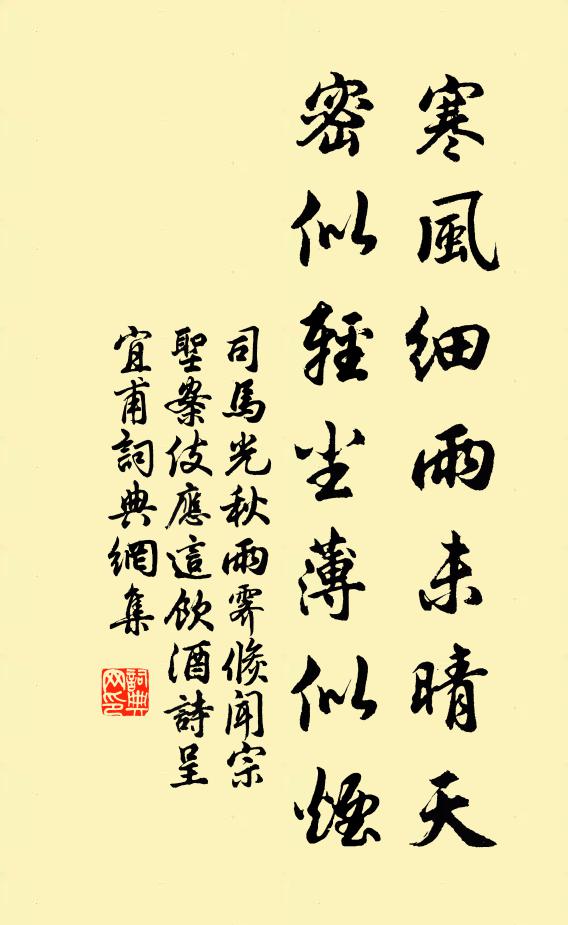 寒風細雨未晴天
密似輕尘薄似煙
司馬光秋雨霽倏聞宗
聖案伎應這飲酒詩呈
宜甫詞典網集
詞典网印